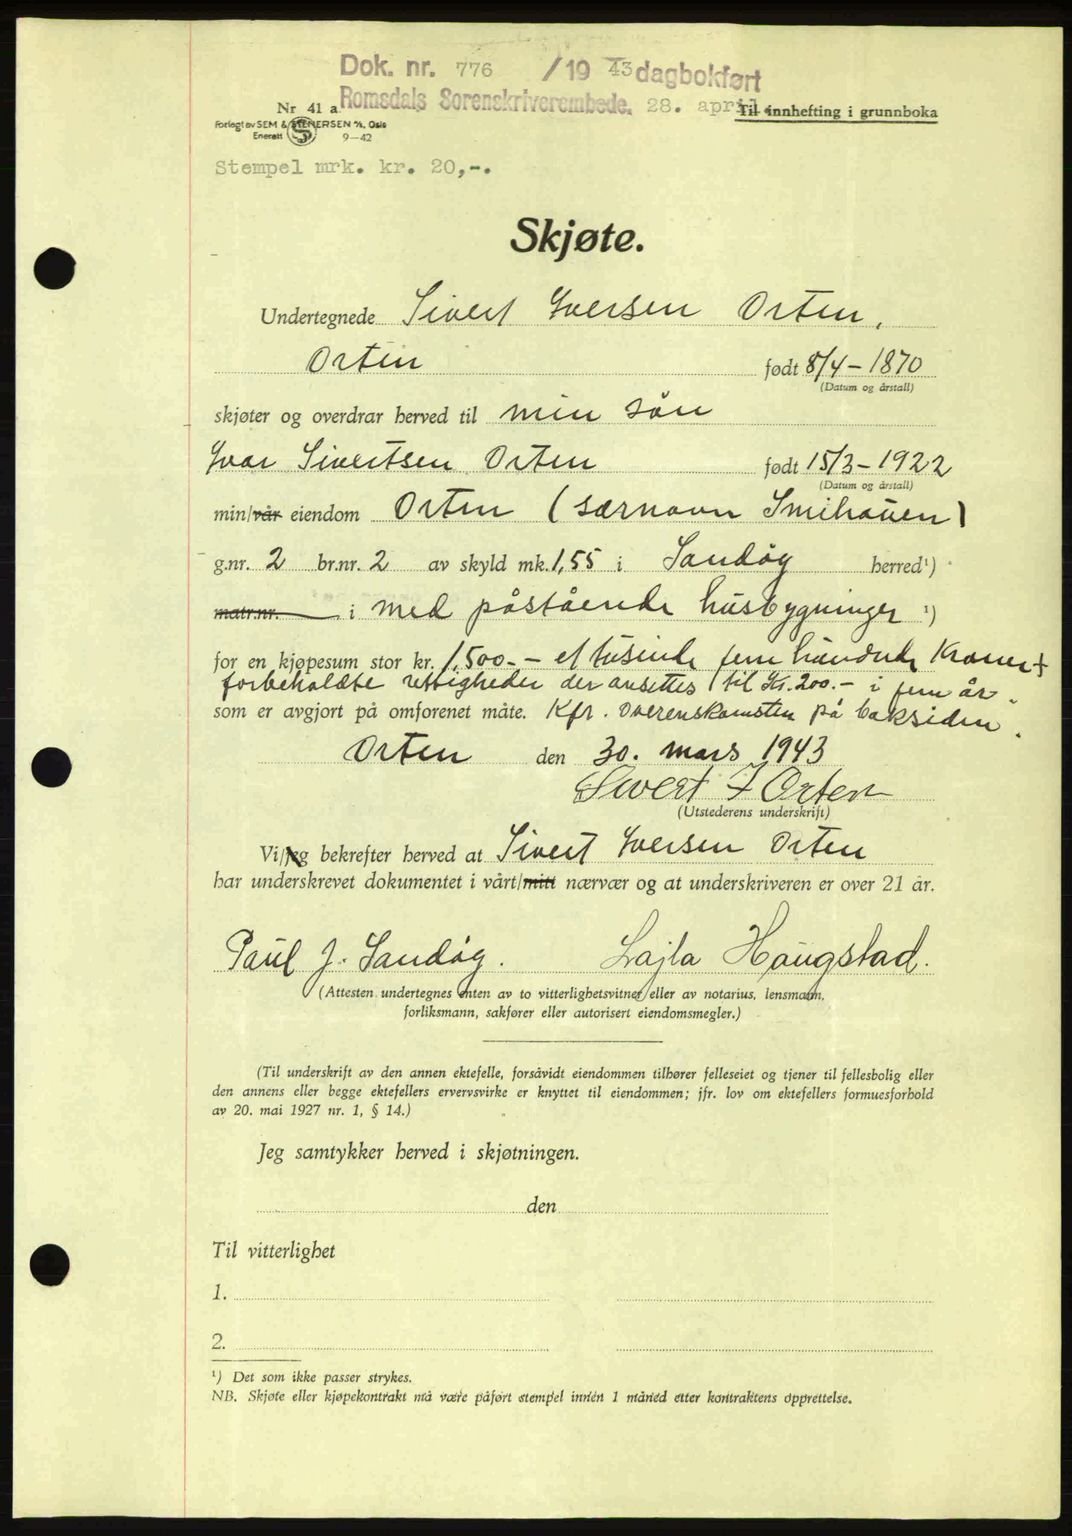 Dok. nr. 776 /1943 dagbokført
Romsdals Sorenskriverembede, 28. april
Nr 41 a
Til innhefting i grunnboka
Forlagt av SEM & STENERSEN A/S, Oslo
Enerett 9—42
Stempel mrk. kr. 20,-.
Skjøte.
Undertegnede Sivert Iversen Orten,
Orten født 8/4 - 1870
(Datum og årstall)
skjøter og overdrar herved til min søn
Ivar Sivertsen Orten født 15/3 - 1922
(Datum og årstall)
min/vår eiendom Orten (særnavn Smihauen)
g.nr. 2 br.nr. 2 av skyld mk. 1,55 i Sandøy herred¹)
matr.nr. i med påstående husbygninger ¹)
for en kjøpesum stor kr. 1,500.- - et tusinde fem hundrede Kroner +
forbeholdte rettigheder der ansettes til Kr. 200.- i fem år.
som er avgjort på omforenet måte. Kfr. overenskomsten på baksiden.
Orten den 30. mars 1943
Sivert I Orten
(Utstederens underskrift)
Vi/jeg bekrefter herved at Sivert Iversen Orten
har underskrevet dokumentet i vårt/mitt nærvær og at underskriveren er over 21 år.
Paul J. Sandøy. Lajla Haugstad.
(Attesten undertegnes enten av to vitterlighetsvitner eller av notarius, lensmann,
forliksmann, sakfører eller autorisert eiendomsmegler.)
(Til underskrift av den annen ektefelle, forsåvidt eiendommen tilhører felleseiet og tjener til fellesbolig eller
den annens eller begge ektefellers ervervsvirke er knyttet til eiendommen; jfr. lov om ektefellers formuesforhold
av 20. mai 1927 nr. 1, § 14.)
Jeg samtykker herved i skjøtningen.
den
Til vitterlighet
1.
2.
¹) Det som ikke passer strykes.
NB. Skjøte eller kjøpekontrakt må være påført stempel innen 1 måned etter kontraktens opprettelse.